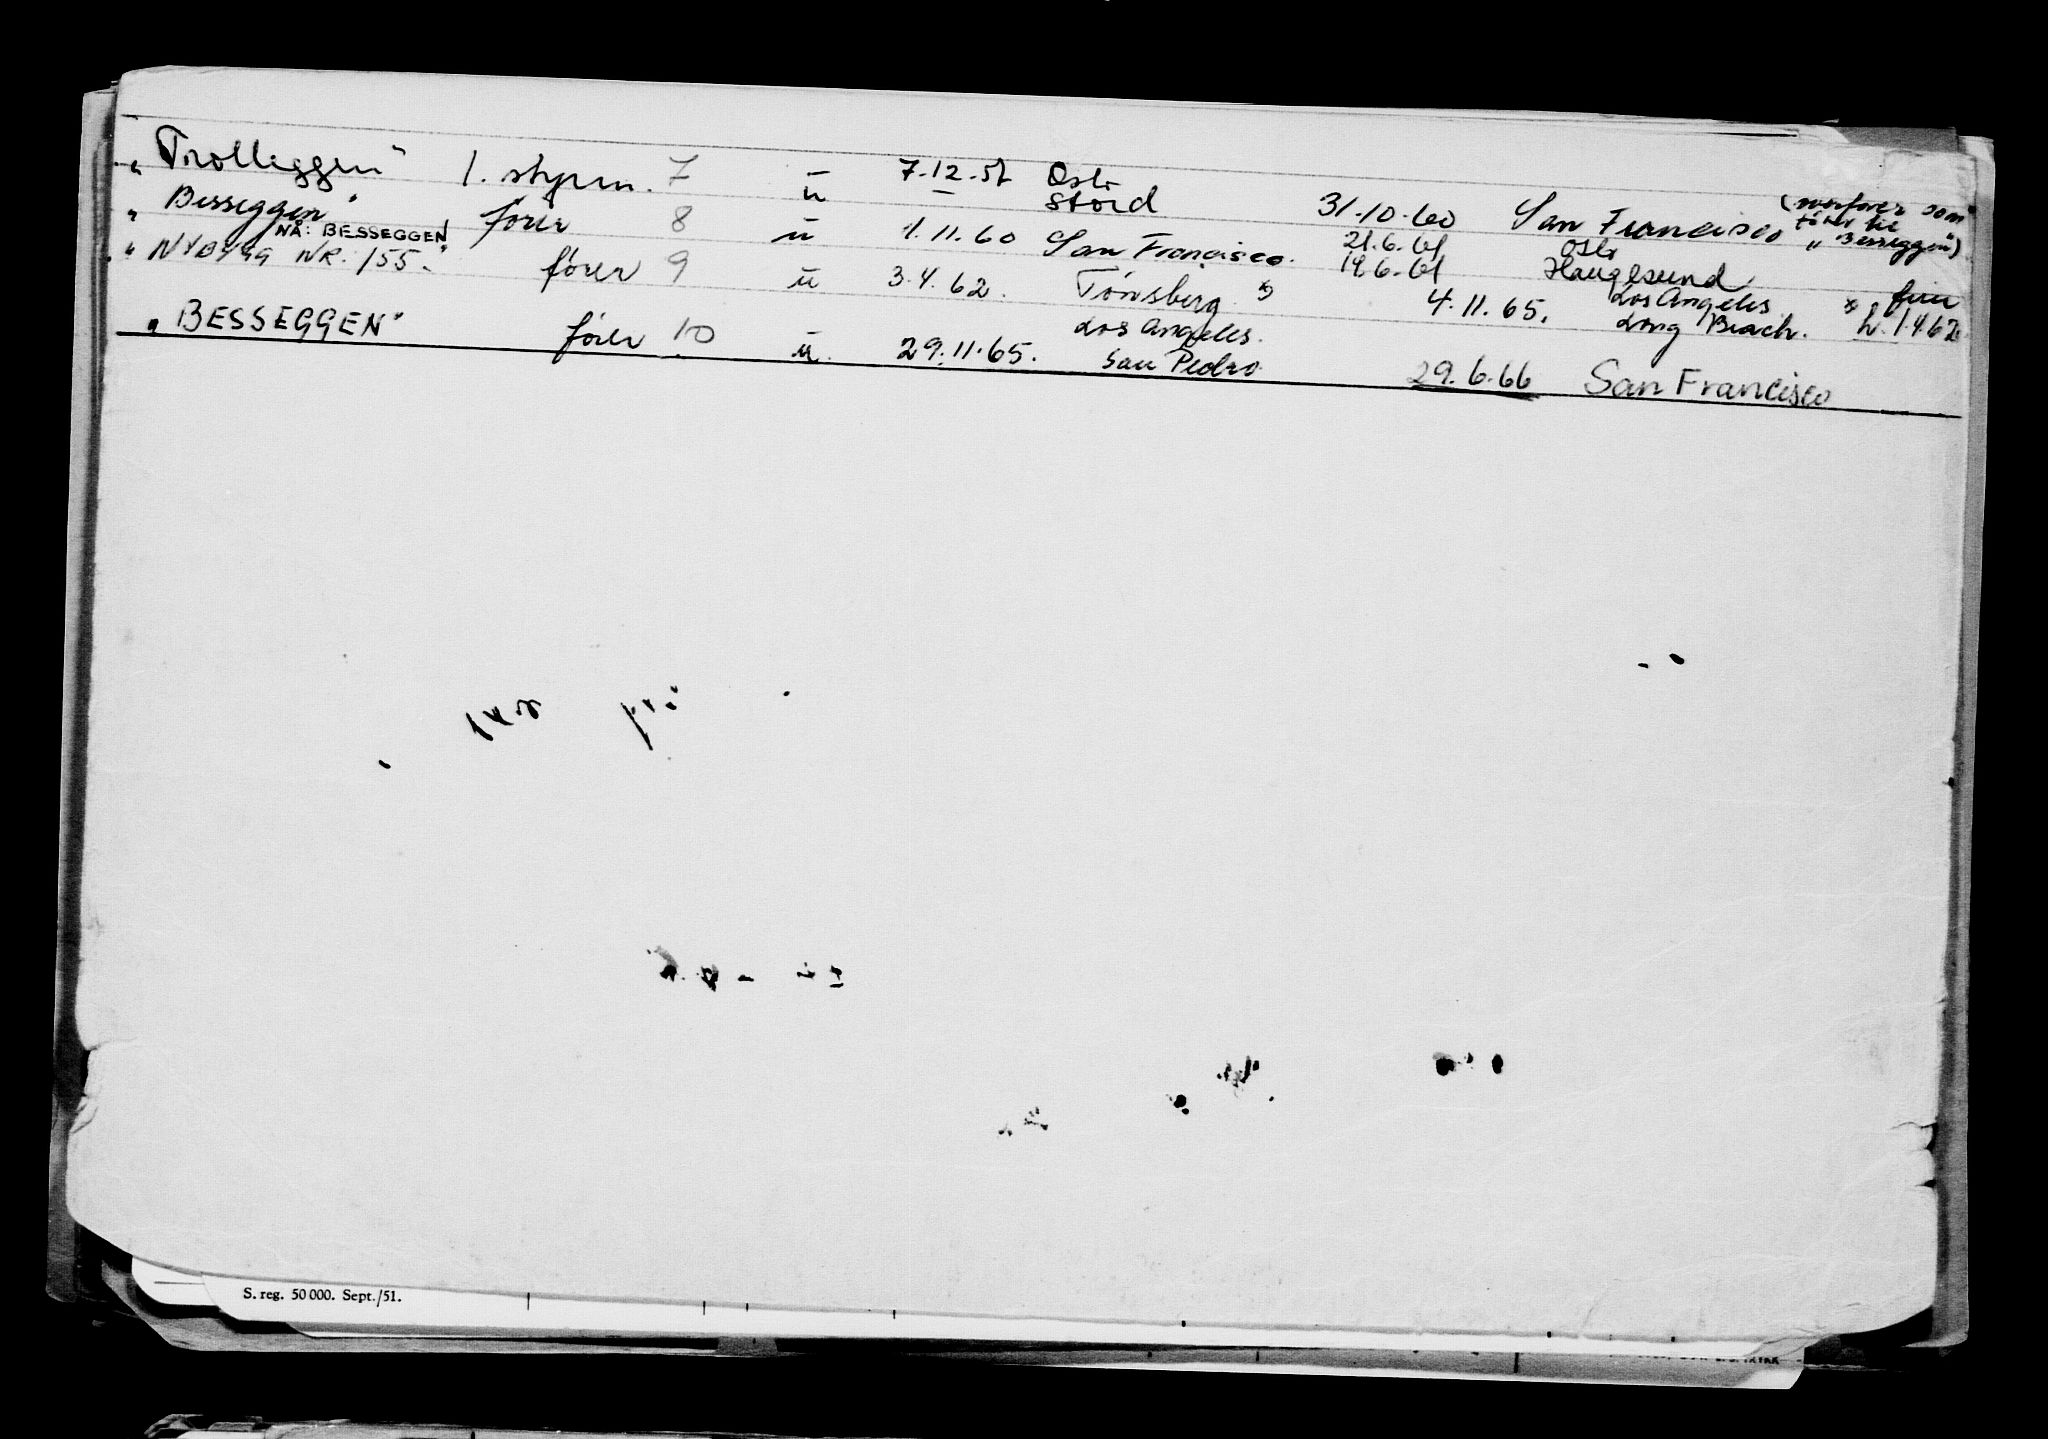 "Trolleggen" 1. styrm. 7 u 7.12.57 Oslo Stord 31.10.60 San Francisco (overfører som fører til "Besseggen")
"Besseggen" fører 8 u 1.11.60 San Francisco. 21.6.61 19.6.61 Oslo Haugesund
NÅ: BESSEGGEN
"NYBYGG NR. 155." fører 9 u 3.4.62. Tønsberg *) 4.11.65. Los Angeles Long Beach. *)
1.4.62
"BESSEGGEN" fører 10 u. 29.11.65. Los Angeles. San Pedro 29.6.66 San Francisco
S. reg. 50 000. Sept./51.